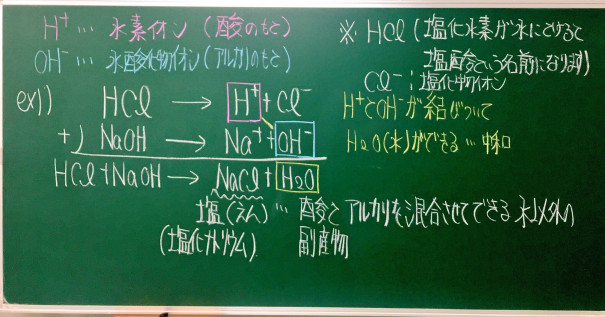 H⁺ … 水素イオン (酸のもと)
OH⁻ … 水酸化物イオン (アルカリのもと)
※ HCl (塩化水素が水にとけると
塩酸という名前になります)
Cl⁻ : 塩化物イオン
ex1) HCl → H⁺ + Cl⁻
+) NaOH → Na⁺ + OH⁻
HCl + NaOH → NaCl + H₂O
H⁺とOH⁻が結びついて
H₂O(水)ができる … 中和
塩(えん) … 酸とアルカリを混合させてできる水以外の
(塩化ナトリウム) 副産物